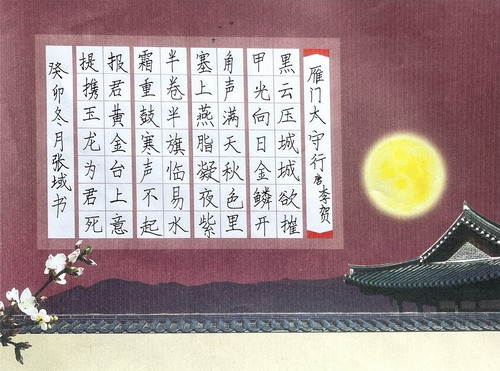 雁门太守行 唐 李贺
黑云压城城欲摧
甲光向日金鳞开
角声满天秋色里
塞上燕脂凝夜紫
半卷半旗临易水
霜重鼓寒声不起
报君黄金台上意
提携玉龙为君死
癸卯冬月张域书